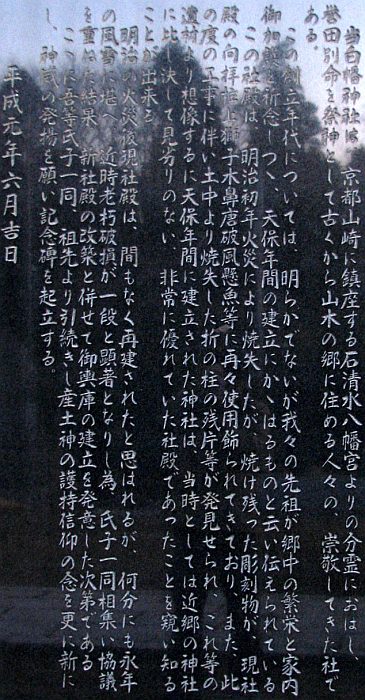 当白幡神社は、京都山崎に鎮座する石清水八幡宮よりの分霊におはし、
誉田別命を祭神として古くから山木の郷に住める人々の、崇敬してきた社で
ある。
この創立年代については、明らかでないが我々の先祖が郷中の繁栄と家内
御加護を祈念しつゝ、天保年間の建立にかゝはるものと云い伝えられている
この社殿は、明治初年火災により焼失したが、焼け残った彫刻物が、現社
殿の向拝柱上獅子木鼻唐破風懸魚等に再々使用飾られてきており、また、此
の度の工事に伴い土中より焼失した折の柱の残片等が発見せられ、これ等の
遺材より想像するに天保年間に建立された神社は、当時としては近郷の神社
に比し決して見劣りのない、非常に優れていた社殿であったことを窺い知る
ことが出来る
明治の火災後現社殿は、間もなく再建されたと思はれるが、何分にも永年
の風雪に堪へ、近時老朽破損が一段と顕著となりし為、氏子一同相集い協議
を重ねた結果、新社殿の改築と併せて御輿庫の建立を発意した次第である
こゝに吾等氏子一同、祖先より引続きし産土神の護持信仰の念を更に新に
し、神威の発揚を願い記念碑を起立する。
平成元年六月吉日